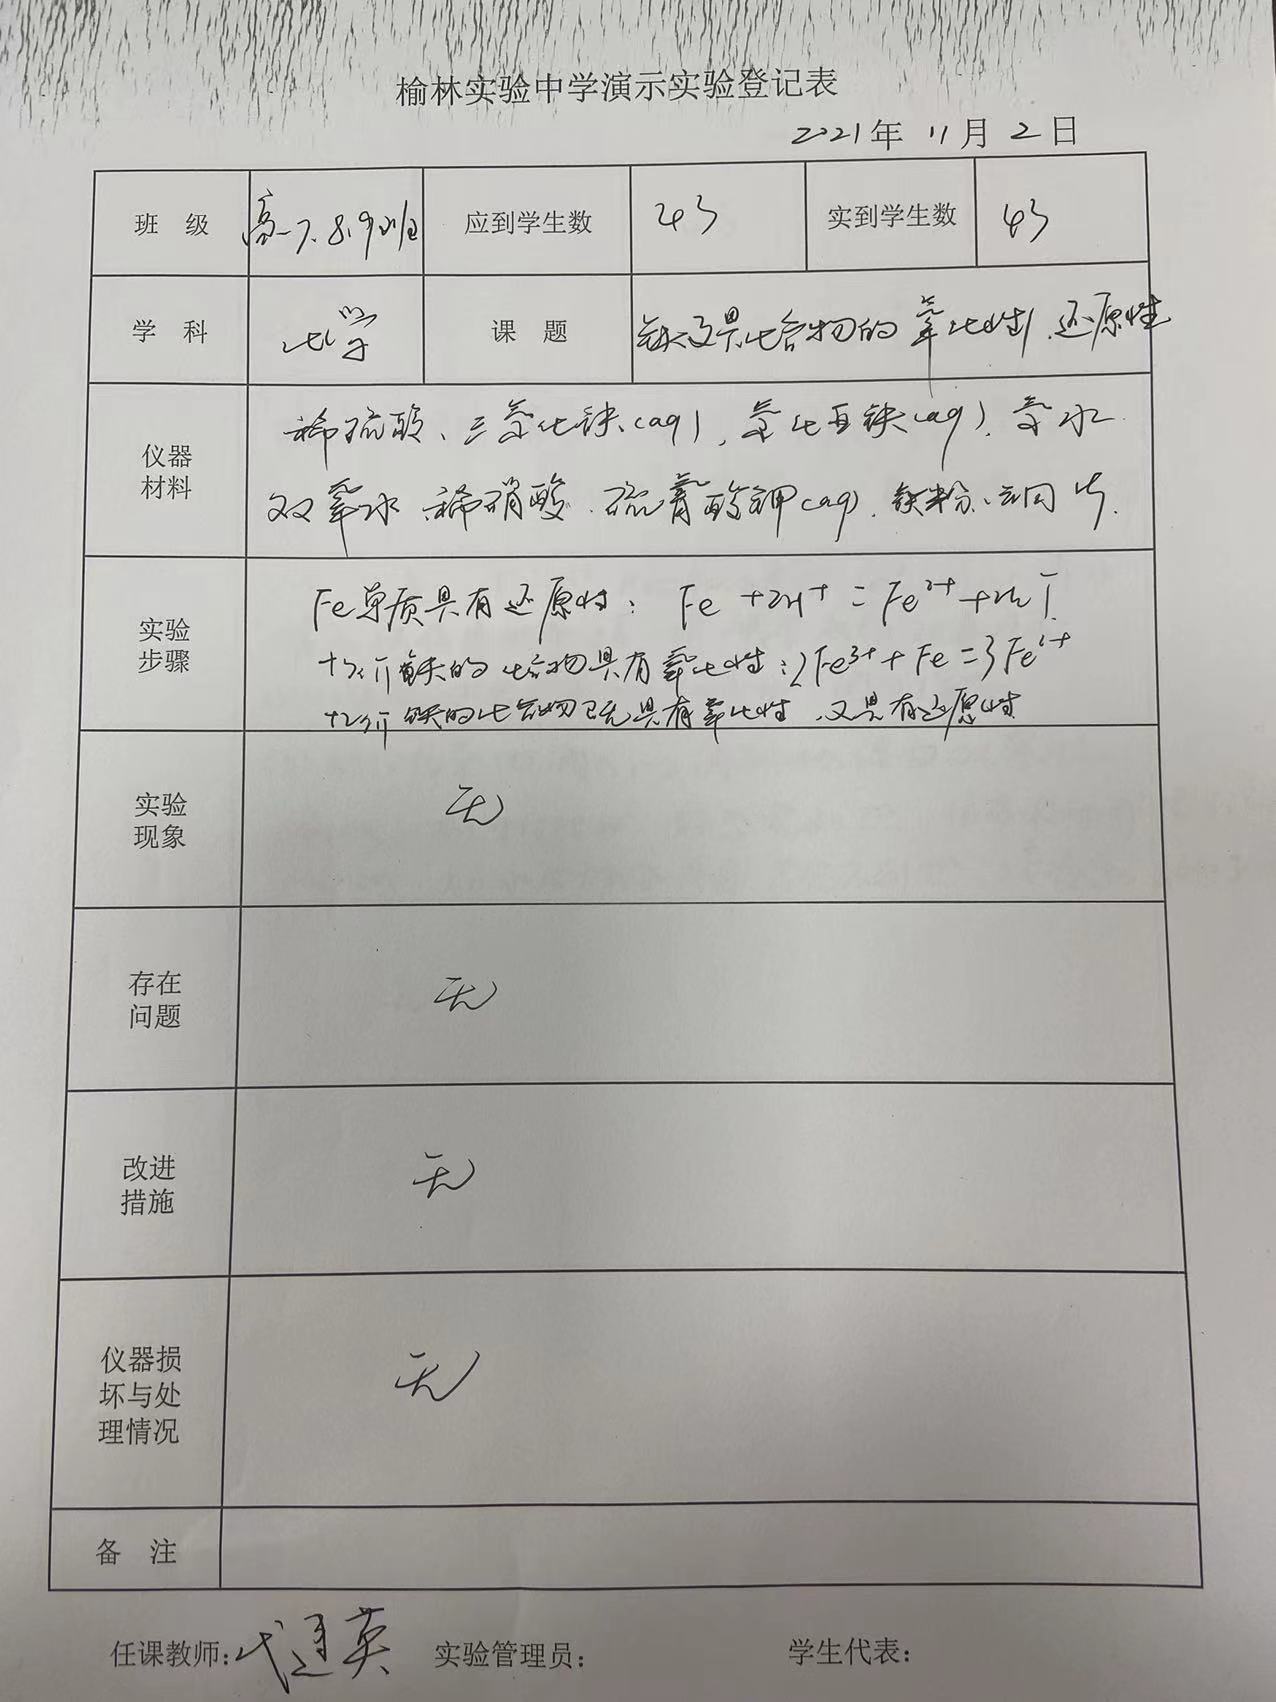 榆林实验中学演示实验登记表
2021年 11月 2日
班 级 高一7.8.9班 应到学生数 43 实到学生数 43
学 科 化学 课 题 铁及其化合物的氧化性、还原性
仪器材料 稀硫酸、三氯化铁(aq)、氯化亚铁(aq)、氯水
双氧水、稀硝酸、硫氰酸钾(aq)、铁粉、铜片
实验步骤 Fe单质具有还原性: Fe +2H⁺ = Fe²⁺ +H₂↑
+3价铁的化合物具有氧化性:2Fe³⁺ + Fe =3Fe²⁺
+2价铁的化合物既具有氧化性、又具有还原性
实验现象 无
存在问题 无
改进措施 无
仪器损坏与处理情况 无
备 注
任课教师: 英 实验管理员: 学生代表: